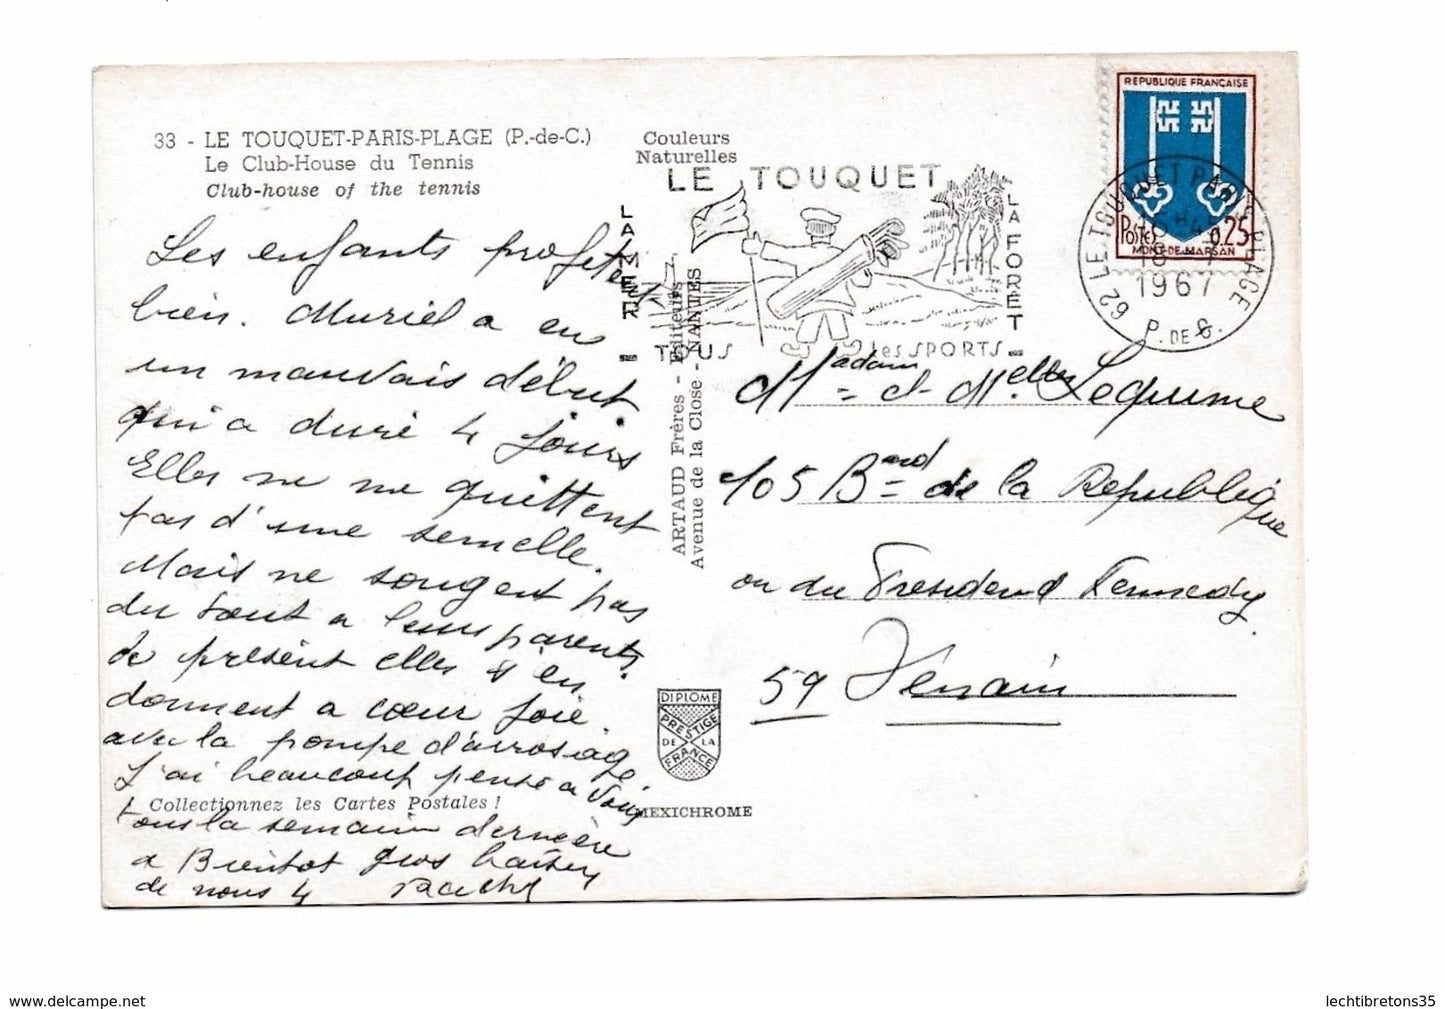 33 - LE TOUQUET-PARIS-PLAGE (P.-de-C.)
Le Club-House du Tennis
Club-house of the tennis
Couleurs
Naturelles
LE TOUQUET
LA MER
LA FORÊT
TOUS les SPORTS
REPUBLIQUE FRANÇAISE
POSTES 0,25
MONT-DE-MARSAN
62 LE TOUQUET PARIS PLAGE
1967
P. DE C.
Les enfants profitent
bien. Muriel a eu
un mauvais début
qui a duré 4 jours
Elles ne me quittent
pas d'une semelle.
Mais ne songent pas
du tout a leurs parents
de présent elles s'en
donnent a cœur joie.
avec la pompe d'arrosage
J'ai beaucoup pensé a vous
Collectionnez les Cartes Postales !
tous la semaine dernière
a Bientot gros baisers
de nous 4
ARTAUD Frères - Editeurs
Avenue de la Close - NANTES
Madame et Melles Lequime
105 Bard de la Republique
ou du President Kennedy
59 Denain
DIPLOME
PRESTIGE
DE LA
FRANCE
MEXICHROME
www.delcampe.net
lechtibretons35